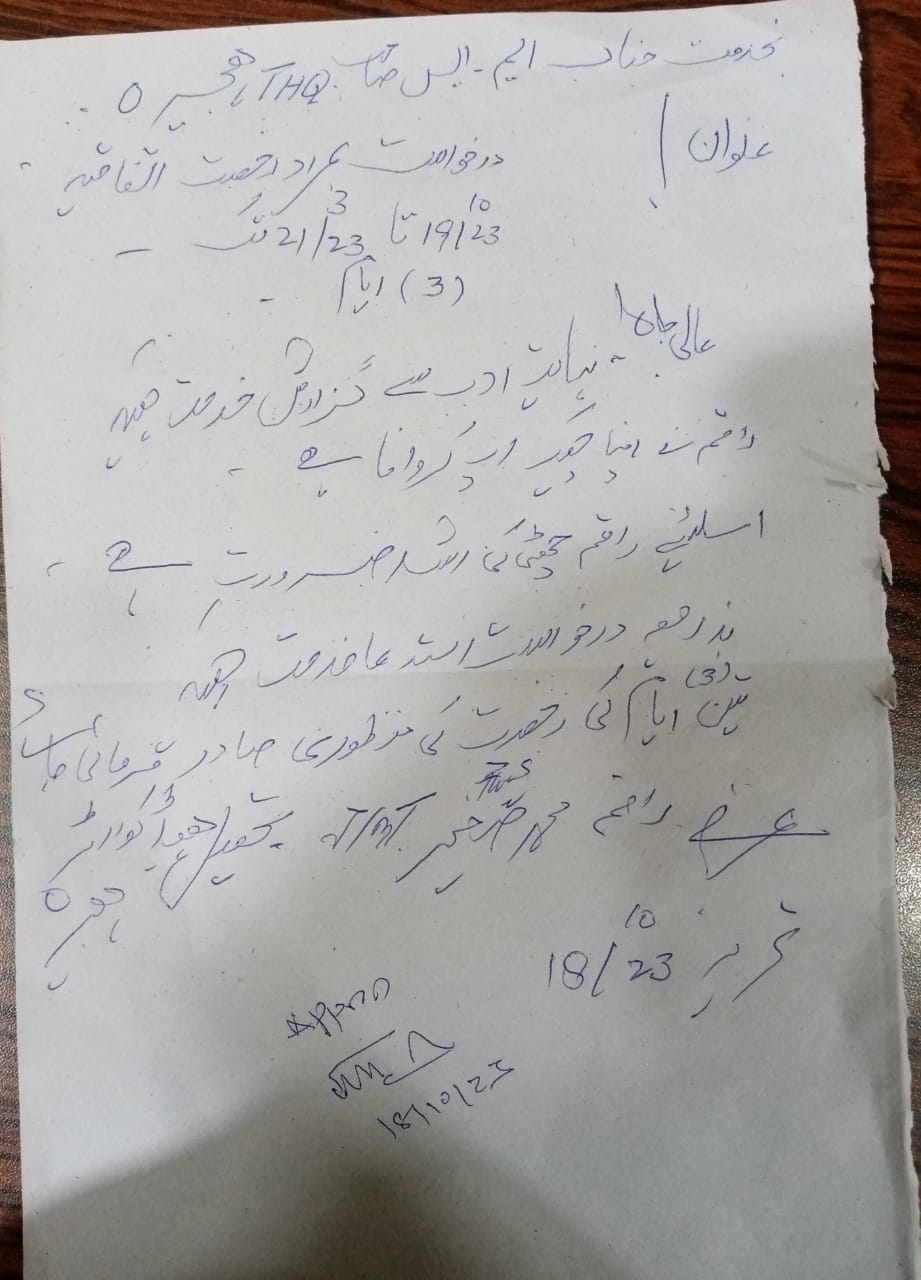 بخدمت جناب ایم۔ایس صاحب THQ ہجیرہ ۔
عنوان / درخواست بمراد رخصت اتفاقیہ ۔
19/10/23 تا 21/23 تک ۔
(3) ایام ۔
عالی جاہ!
نہایت ادب سے گزارش خدمت ہیکہ
راقم نے اپنا چیک اپ کروانا ہے ۔
اسلئیے راقم چھٹی کی اشد ضرورت ہے ۔
بذریعہ درخواست استدعا خدمت ہیکہ
تین (3) ایام کی رخصت کی منظوری صادر فرمائی جائے
راقم محمد تحصیل ہیڈ کوارٹر
ہجیرہ
تحریر 18/10/23
18/10/23